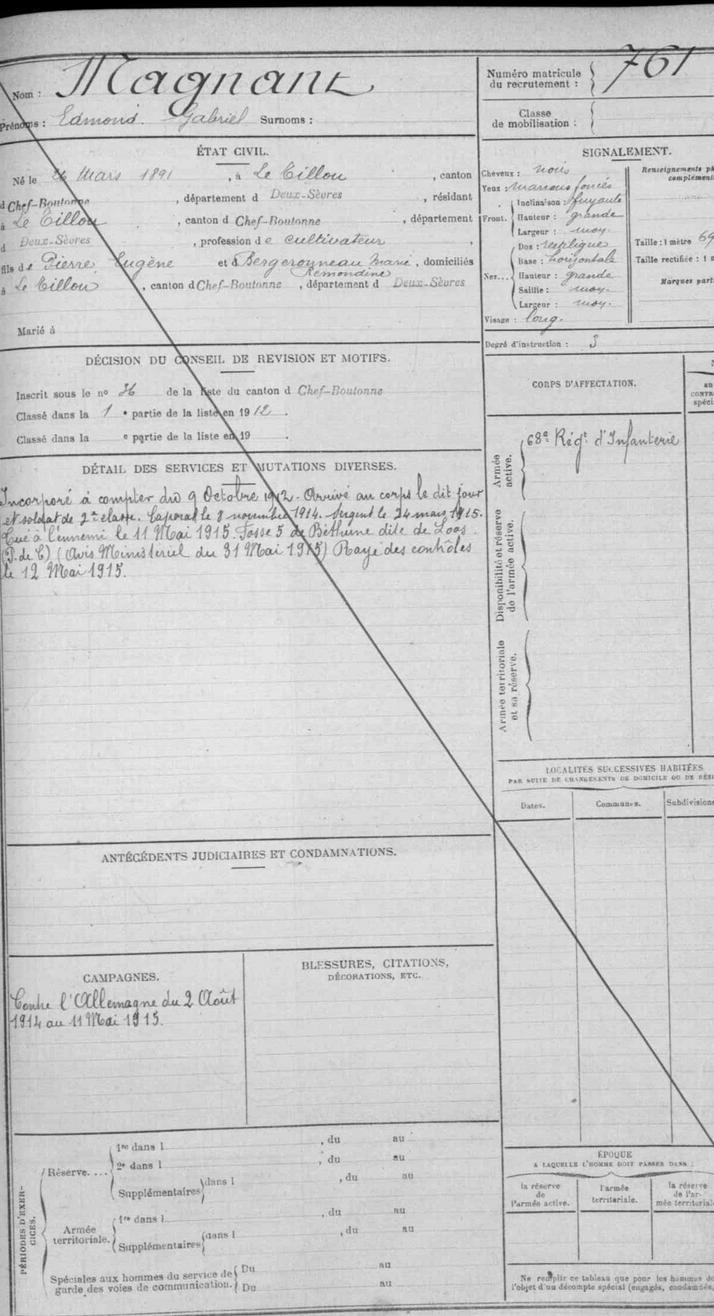 Nom : Magnant
Prénoms : Edmond Gabriel Surnoms :
ÉTAT CIVIL.
Né le 26 Mars 1891, à Le Tillou, canton
d Chef-Boutonne, département d Deux-Sèvres, résidant
à Le Tillou, canton d Chef-Boutonne, département
d Deux-Sèvres, profession de cultivateur,
fils de Pierre Eugène et d Bergeronneau Marie, domiciliés
Rémondine
à Le Tillou, canton d Chef-Boutonne, département d Deux-Sèvres
Marié à
DÉCISION DU CONSEIL DE REVISION ET MOTIFS.
Inscrit sous le no 36 de la liste du canton d Chef-Boutonne
Classé dans la 1 e partie de la liste en 1912.
Classé dans la e partie de la liste en 19 .
DÉTAIL DES SERVICES ET MUTATIONS DIVERSES.
Incorporé à compter du 9 Octobre 1912. Arrivé au corps le dit jour
et soldat de 2e classe. Caporal le 8 novembre 1914. Sergent le 24 mars 1915.
Tué à l'ennemi le 11 Mai 1915. Fosse 5 de Béthune dite de Loos
(P. de C) (Avis Ministériel du 31 Mai 1915) Rayé des contrôles
le 12 Mai 1915.
ANTÉCÉDENTS JUDICIAIRES ET CONDAMNATIONS.
CAMPAGNES.
Contre l'Allemagne du 2 Août
1914 au 11 Mai 1915.
BLESSURES, CITATIONS,
DÉCORATIONS, ETC.
PÉRIODES D'EXERCICES.
Réserve....
1re dans l , du au
2e dans l , du au
Supplémentaires dans l , du au
Armée territoriale.
1re dans l , du au
Supplémentaires dans l , du au
Spéciales aux hommes du service de garde des voies de communication.
Du au
Du au
Numéro matricule du recrutement : 761
Classe de mobilisation :
SIGNALEMENT.
Cheveux : noirs
Yeux marrons foncés
Front. Inclinaison fuyante
Hauteur : grande
Largeur : moy.
Nez... Dos : rectiligne
Base : horizontale
Hauteur : grande
Saillie : moy.
Largeur : moy.
Visage : long.
Renseignements
Taille : 1 mètre 69
Taille rectifiée : 1
Marques
Degré d'instruction : 3
CORPS D'AFFECTATION.
Armée active.
68e Régt d'Infanterie
Disponibilité et réserve de l'armée active.
Armée territoriale et sa réserve.
LOCALITÉS SUCCESSIVES HABITÉES
PAR SUITE DE CHANGEMENTS DE DOMICILE OU DE
Dates. Communes. Subdivisions
ÉPOQUE
A LAQUELLE L'HOMME DOIT PASSER DANS :
la réserve de l'armée active.
l'armée territoriale.
la réserve de l'armée
Ne remplir ce tableau que pour les hommes
l'objet d'un décompte spécial (engagés, condamnés,